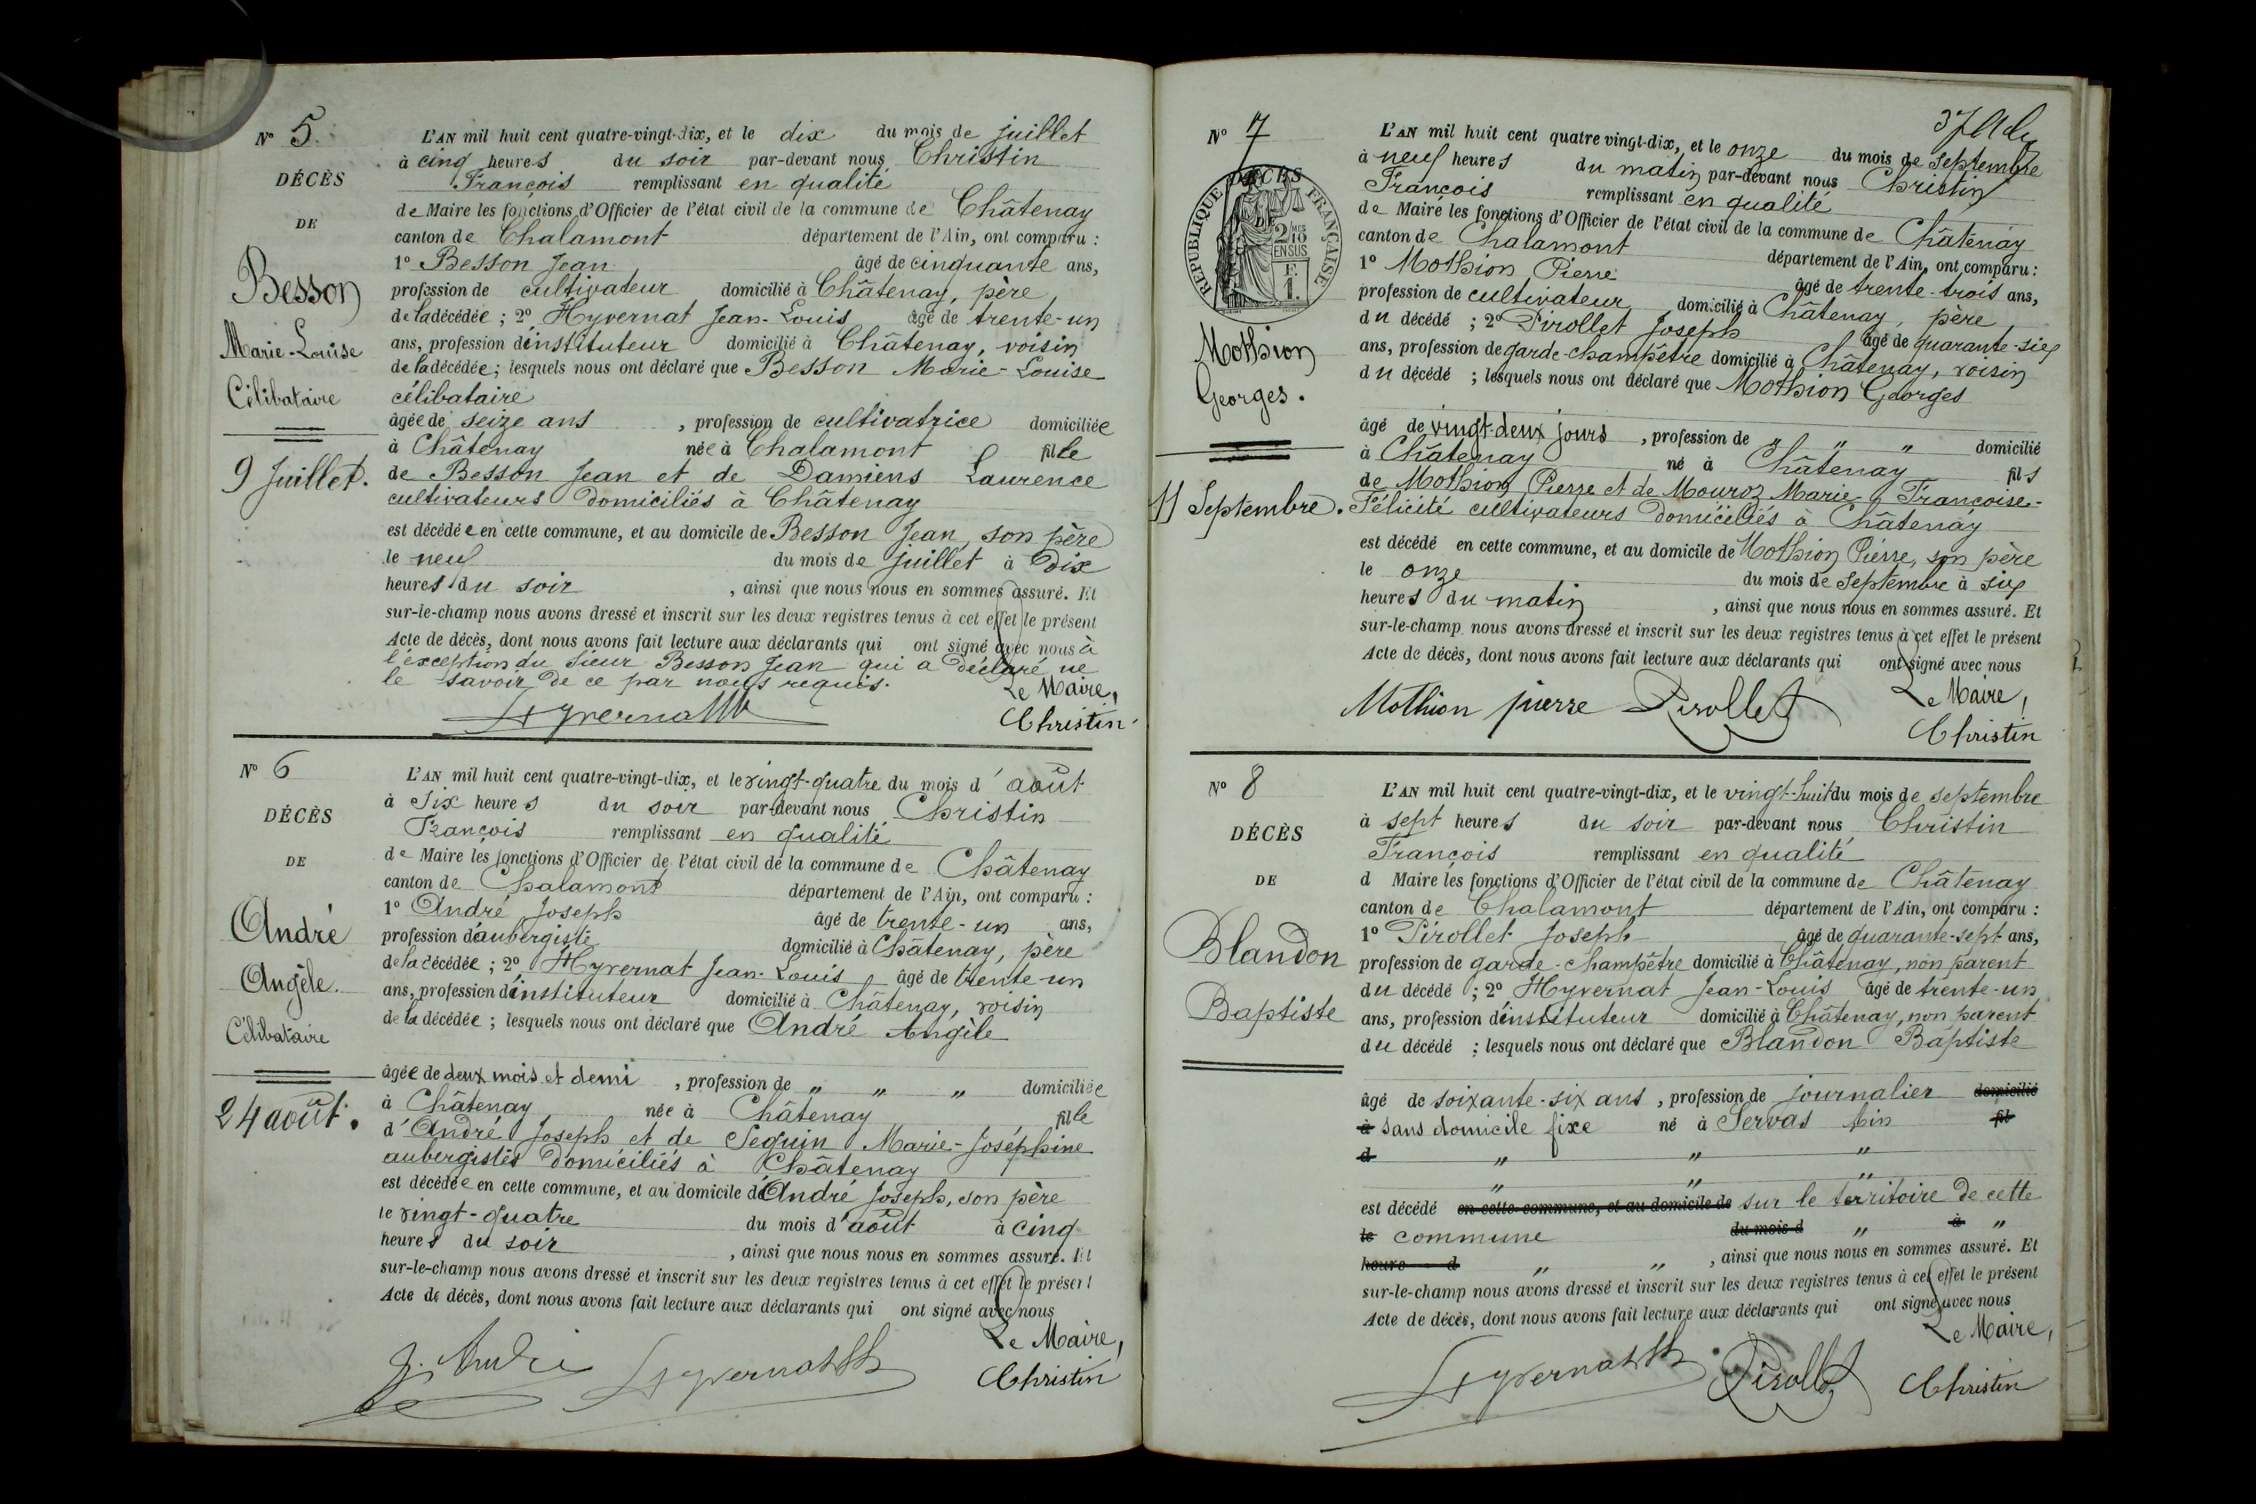 N° 5.
DÉCÈS
DE
Besson
Marie-Louise
Célibataire
9 Juillet.
L'AN mil huit cent quatre-vingt-dix, et le dix du mois de juillet
à cinq heures du soir par-devant nous Christin
François remplissant en qualité
de Maire les fonctions d'Officier de l'état civil de la commune de Châtenay
canton de Chalamont département de l'Ain, ont comparu :
1° Besson Jean âgé de cinquante ans,
profession de cultivateur domicilié à Châtenay, père
de la décédée ; 2° Hyvernat Jean-Louis âgé de trente-un
ans, profession d'instituteur domicilié à Châtenay, voisin
de la décédée ; lesquels nous ont déclaré que Besson Marie-Louise
célibataire
âgée de seize ans , profession de cultivatrice domiciliée
à Châtenay née à Chalamont fille
de Besson Jean et de Damiens Laurence
cultivateurs domiciliés à Châtenay
est décédée en cette commune, et au domicile de Besson Jean, son père
le neuf du mois de juillet à dix
heures du soir , ainsi que nous nous en sommes assuré. Et
sur-le-champ nous avons dressé et inscrit sur les deux registres tenus à cet effet le présent
Acte de décès, dont nous avons fait lecture aux déclarants qui ont signé avec nous à
l'exception du sieur Besson Jean qui a déclaré ne
le savoir de ce par nous requis.
Le Maire,
Hyvernat Christin
N° 6
DÉCÈS
DE
André
Angèle.
Célibataire
24 août.
L'AN mil huit cent quatre-vingt-dix, et le vingt-quatre du mois d'août
à six heures du soir par-devant nous Christin
François remplissant en qualité
de Maire les fonctions d'Officier de l'état civil de la commune de Châtenay
canton de Chalamont département de l'Ain, ont comparu :
1° André Joseph âgé de trente-un ans,
profession d'aubergiste domicilié à Châtenay, père
de la décédée ; 2° Hyvernat Jean-Louis âgé de trente-un
ans, profession d'instituteur domicilié à Châtenay, voisin
de la décédée ; lesquels nous ont déclaré que André Angèle
âgée de deux mois et demi , profession de " " " domiciliée
à Châtenay née à Châtenay fille
d'André Joseph et de Seguin Marie-Joséphine
aubergistes domiciliés à Châtenay
est décédée en cette commune, et au domicile d'André Joseph, son père
le vingt-quatre du mois d'août à cinq
heures du soir , ainsi que nous nous en sommes assuré. Et
sur-le-champ nous avons dressé et inscrit sur les deux registres tenus à cet effet le présent
Acte de décès, dont nous avons fait lecture aux déclarants qui ont signé avec nous
Le Maire,
J. André Hyvernat Christin
N° 7
DÉCÈS
RÉPUBLIQUE FRANÇAISE
2/10
EN SUS
F.
1.
Mothion
Georges.
11 Septembre.
L'AN mil huit cent quatre vingt-dix, et le onze du mois de septembre
à neuf heures du matin par-devant nous Christin
François remplissant en qualité
de Maire les fonctions d'Officier de l'état civil de la commune de Châtenay
canton de Chalamont département de l'Ain, ont comparu :
1° Mothion Pierre âgé de trente-trois ans,
profession de cultivateur domicilié à Châtenay, père
du décédé ; 2° Pirollet Joseph âgé de quarante-six
ans, profession de garde-champêtre domicilié à Châtenay, voisin
du décédé ; lesquels nous ont déclaré que Mothion Georges
âgé de vingt-deux jours , profession de " " " domicilié
à Châtenay né à Châtenay fils
de Mothion Pierre et de Mouroz Marie-Françoise-
Félicité cultivateurs domiciliés à Châtenay
est décédé en cette commune, et au domicile de Mothion Pierre, son père
le onze du mois de septembre à six
heures du matin , ainsi que nous nous en sommes assuré. Et
sur-le-champ nous avons dressé et inscrit sur les deux registres tenus à cet effet le présent
Acte de décès, dont nous avons fait lecture aux déclarants qui ont signé avec nous
Le Maire,
Mothion pierre Pirollet Christin
N° 8
DÉCÈS
DE
Blandon
Baptiste
L'AN mil huit cent quatre-vingt-dix, et le vingt-huit du mois de septembre
à sept heures du soir par-devant nous Christin
François remplissant en qualité
d Maire les fonctions d'Officier de l'état civil de la commune de Châtenay
canton de Chalamont département de l'Ain, ont comparu :
1° Pirollet Joseph âgé de quarante-sept ans,
profession de garde-champêtre domicilié à Châtenay, non parent
du décédé ; 2° Hyvernat Jean-Louis âgé de trente-un
ans, profession d'instituteur domicilié à Châtenay, non parent
du décédé ; lesquels nous ont déclaré que Blandon Baptiste
âgé de soixante-six ans , profession de journalier domicilié
à sans domicile fixe né à Servas Ain fil
d " " "
" " "
est décédé en cette commune, et au domicile de sur le territoire de cette
le commune du mois d " à "
heure d " " , ainsi que nous nous en sommes assuré. Et
sur-le-champ nous avons dressé et inscrit sur les deux registres tenus à cet effet le présent
Acte de décès, dont nous avons fait lecture aux déclarants qui ont signé avec nous
Le Maire,
Hyvernat Pirollet Christin